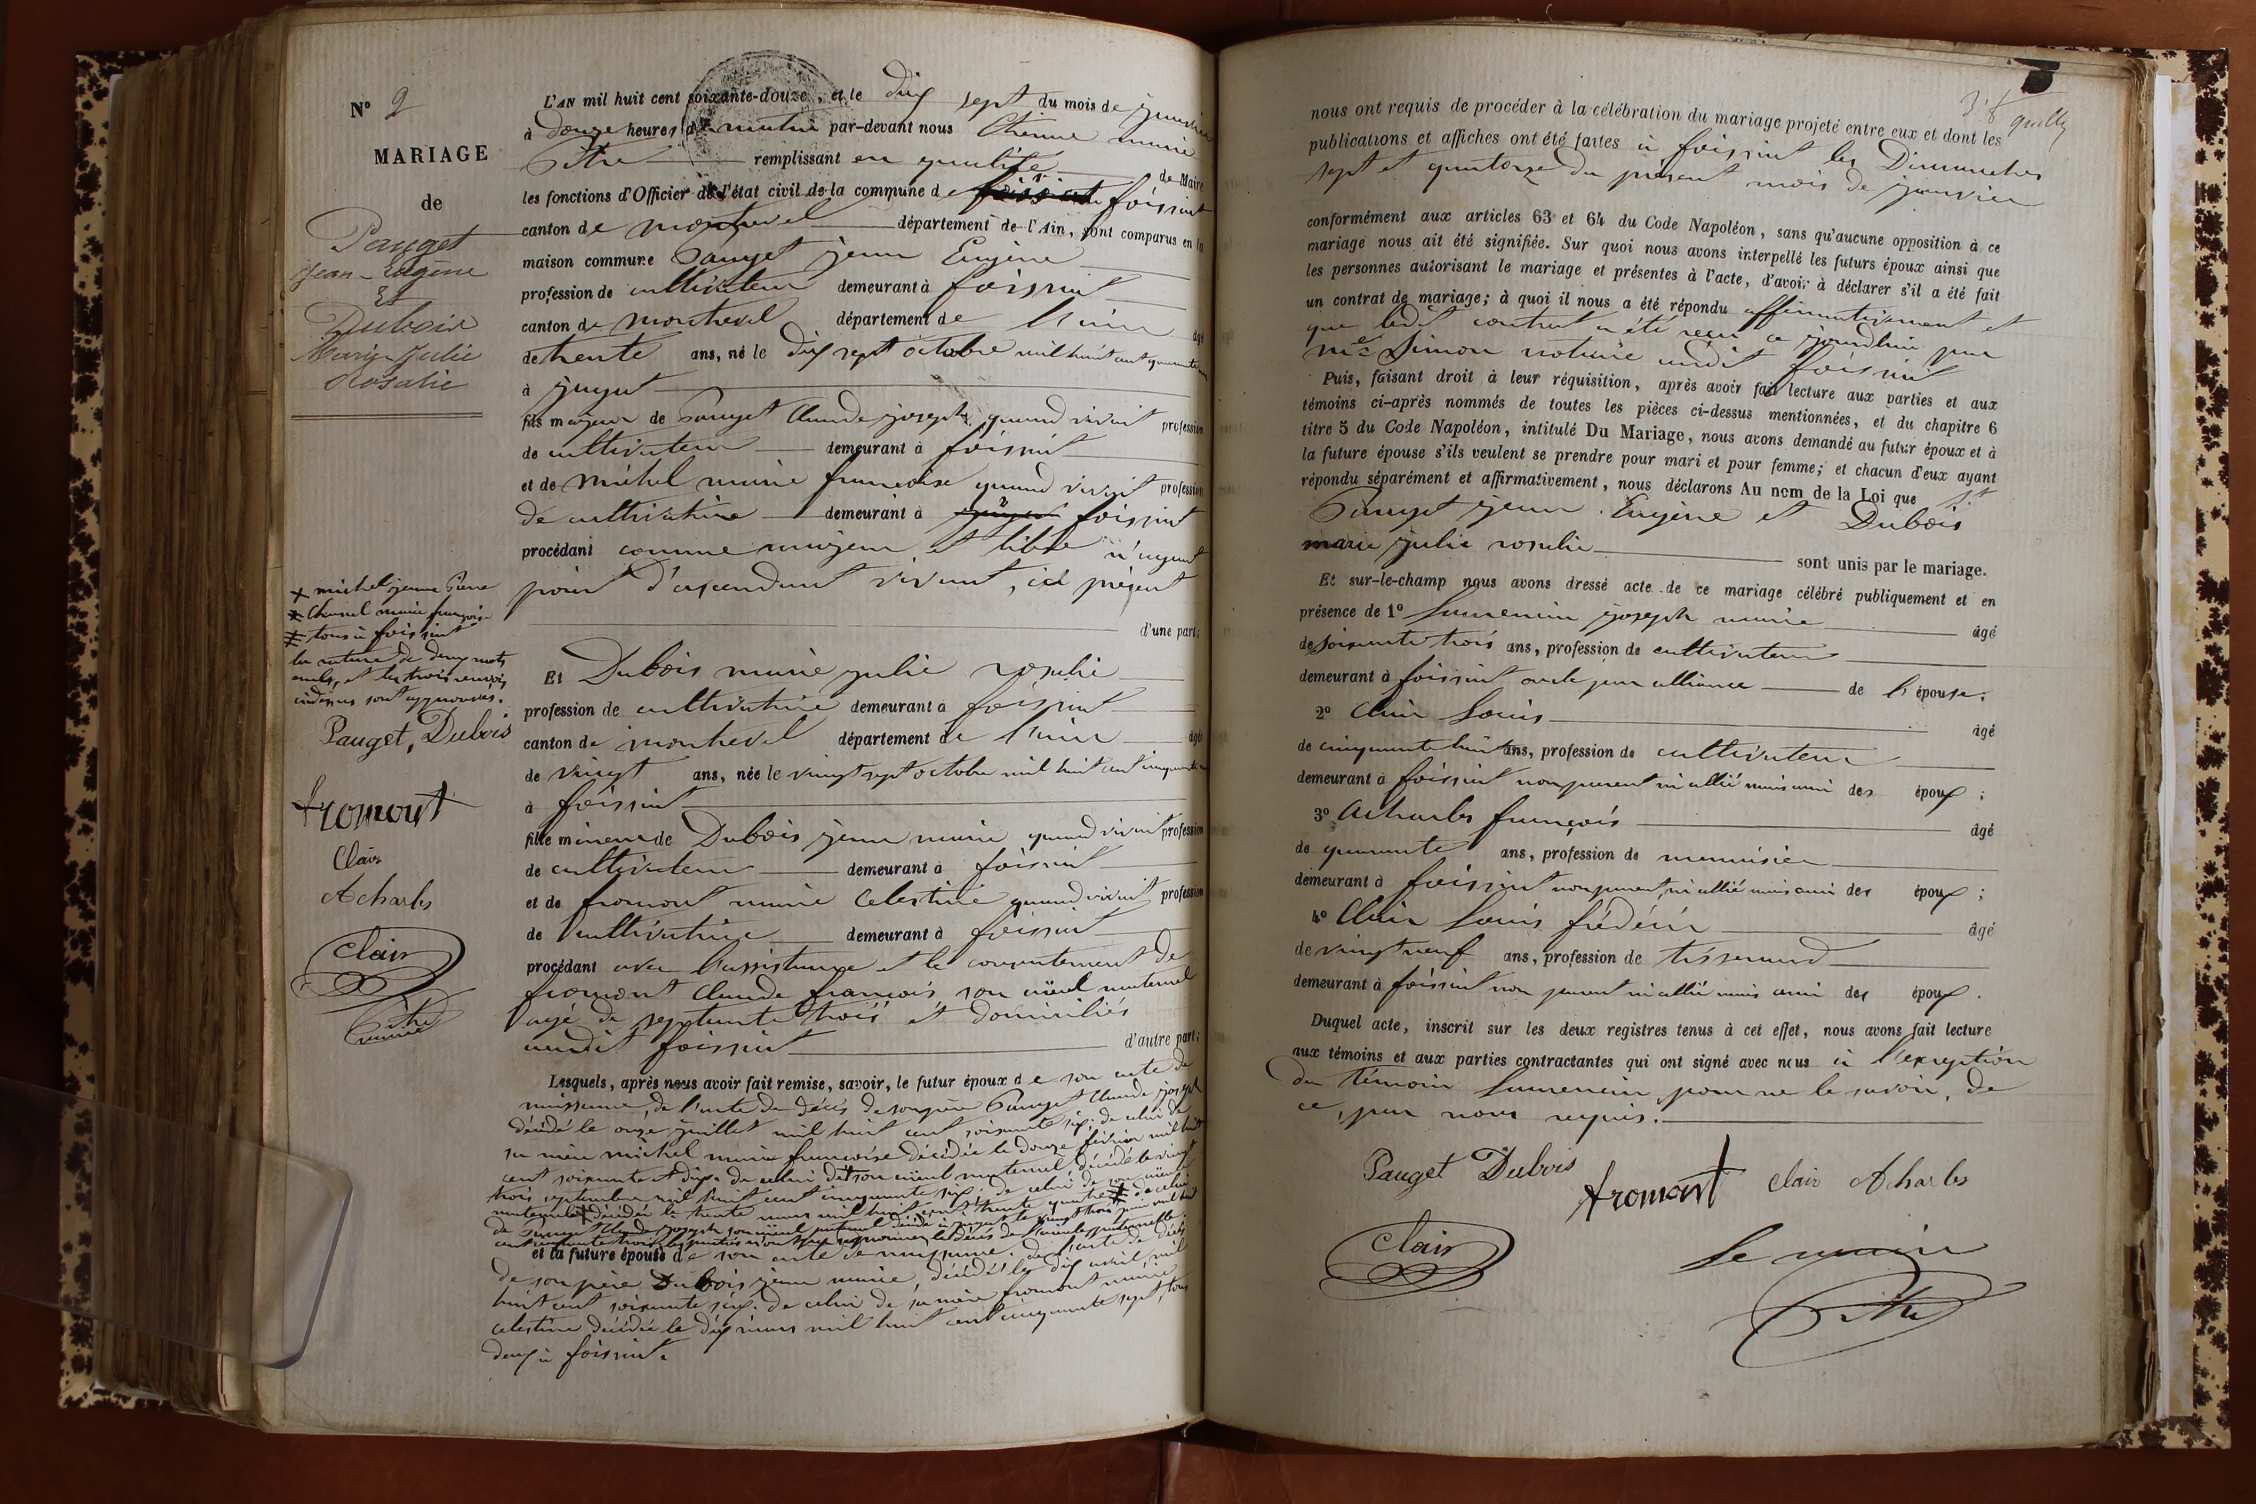 N° 2
MARIAGE
de
Pauget
Jean-Eugène
Et
Dubois
Marie-Julie
Rosalie
L'AN mil huit cent soixante-douze, et le dix sept du mois de janvier
à douze heures du matin par-devant nous Etienne marie
Pitre remplissant en qualité de Maire
les fonctions d'Officier de l'état civil de la commune de foissiat foissiat
canton de montrevel département de l'Ain, sont comparus en la
maison commune Pauget jean Eugène
profession de cultivateur demeurant à foissiat
canton de montrevel département de l'ain âgé
de trente ans, né le dix sept octobre mil huit cent quarante un
à jayat
fils majeur de Pauget Claude joseph quand vivait profession
de cultivateur demeurant à foissiat
et de michel marie francoise quand vivait profession
de cultivatrice demeurant à jayat foissiat
procédant comme majeur et libre n'ayant
point d'ascendant vivant, ici présent
d'une part;
x michel jeanne Pierre
x Charnel marie françoise
‡ tous à foissiat
la rature de deux mots
nuls, et les trois renvois
cidessus sont approuvés.
Pauget, Dubois
fromont
Clair
Acharles
Clair
Pitre
maire
Et Dubois marie julie rosalie
profession de cultivatrice demeurant à foissiat
canton de montrevel département de l'ain âgée
de vingt ans, née le vingt sept octobre mil huit cent cinquante un
à foissiat
fille mineure de Dubois jean marie quand vivait profession
de cultivateur demeurant à foissiat
et de fromont marie Celestine quand vivait profession
de cultivatrice demeurant à foissiat
procédant avec l'assistance et le consentement de
fromont Claude françois son aïeul maternel
âgé de septante trois et domiciliés
audit foissiat d'autre part;
Lesquels, après nous avoir fait remise, savoir, le futur époux de son acte de
naissance, de l'acte de décès de son père Pauget Claude joseph
décédé le onze juillet mil huit cent soixante six; de celui de
sa mère michel marie francoise décédée le douze février mil huit
cent soixante et dix; de celui de son aïeul maternel décédé le vingt
trois septembre mil huit cent cinquante six; de celui de son aïeule
maternelle x décédée le trente mars mil huit cent trente quatre ‡ de celui
de Pauget Claude joseph son aïeul paternel décédé à jayat le vingt trois juin mil huit
cent cinquante trois, les parties n'ont pu représenter le décès de l'aïeule paternelle
et la future épouse de son acte de naissance. de l'acte de décès
de son père Dubois jean marie, décédé le dix avril mil
huit cent soixante six. de celui de sa mère fromont marie
celestine décédée le dix mars mil huit cent cinquante sept, tous
deux à foissiat.
nous ont requis de procéder à la célébration du mariage projeté entre eux et dont les
publications et affiches ont été faites à foissiat les Dimanches
sept et quatorze du présent mois de janvier
conformément aux articles 63 et 64 du Code Napoléon, sans qu'aucune opposition à ce
mariage nous ait été signifiée. Sur quoi nous avons interpellé les futurs époux ainsi que
les personnes autorisant le mariage et présentes à l'acte, d'avoir à déclarer s'il a été fait
un contrat de mariage; à quoi il nous a été répondu affirmativement et
que ledit contrat a été reçu ce jourdhui par
me Simon notaire audit foissiat
Puis, faisant droit à leur réquisition, après avoir fait lecture aux parties et aux
témoins ci-après nommés de toutes les pièces ci-dessus mentionnées, et du chapitre 6
titre 5 du Code Napoléon, intitulé Du Mariage, nous avons demandé au futur époux et à
la future épouse s'ils veulent se prendre pour mari et pour femme; et chacun d'eux ayant
répondu séparément et affirmativement, nous déclarons Au nom de la Loi que
Pauget jean Eugène et Dubois
marie julie rosalie sont unis par le mariage.
Et sur-le-champ nous avons dressé acte de ce mariage célébré publiquement et en
présence de 1° Laurencin joseph marie âgé
de soixante trois ans, profession de cultivateur
demeurant à foissiat oncle par alliance de l'épouse;
2° Clair Louis âgé
de cinquante huit ans, profession de cultivateur
demeurant à foissiat non parent ni allié mais ami des époux;
3° Acharles françois âgé
de quarante ans, profession de menuisier
demeurant à foissiat non parent, ni allié mais ami des époux;
4° Clair Louis frédéric âgé
de vingt neuf ans, profession de tisserand
demeurant à foissiat non parent ni allié mais ami des époux.
Duquel acte, inscrit sur les deux registres tenus à cet effet, nous avons fait lecture
aux témoins et aux parties contractantes qui ont signé avec nous à l'exception
du témoin Laurencin, pour ne le savoir, de
ce, par nous requis.
Pauget Dubois fromont Clair Acharles
Clair
Le maire
Pitre